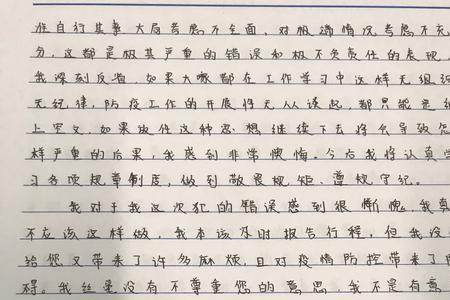 自行其事,大局考虑不全面,对极端情况考虑不充
分,这都是极其严重的错误和极不负责任的表现
我深刻反省,如果大都在工作学习中这样无组织
无纪律,防疫工作的开展将无从谈起,都只能是纸
上空文,如果放任这种思想继续下去将会导致怎
样严重的后果,我感到非常懊悔。今后我将认真学
习各项规章制度,做到敬畏规矩、遵规守纪。
我对于我这次犯的错误感到很惭愧,我真
不应该这样做,我本该及时报告行程,但我没
给您又带来了许多麻烦,且对疫情防控带来了
碍。我丝毫没有不尊重您的意思,我不是有